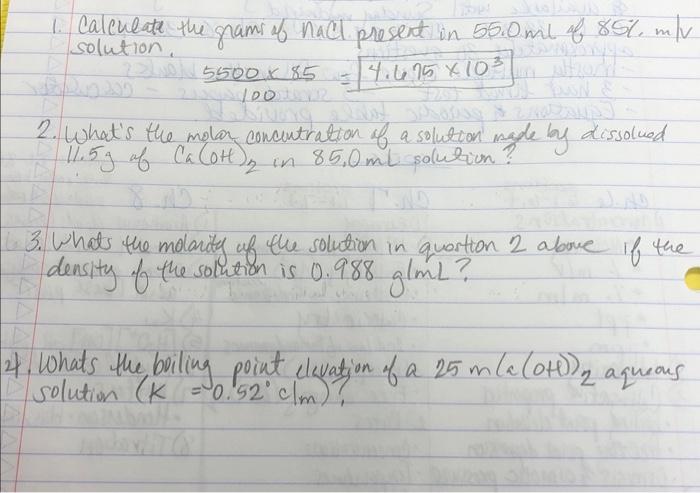 1. Calculate the grams of NaCl present in 55.0 mL of 85% m/v
solution.
5500 x 85
100
= 4.675 x 10³
2. What's the molar concentration of a solution made by dissolved
11.5g of Ca(OH)₂ in 85.0 mL solution?
3. Whats the molality of the solution in question 2 above if the
density of the solution is 0.988 g/mL?
4. Whats the boiling point elevation of a 25 m (a(OH))₂ aqueous
solution (K = 0.52° c/m)?